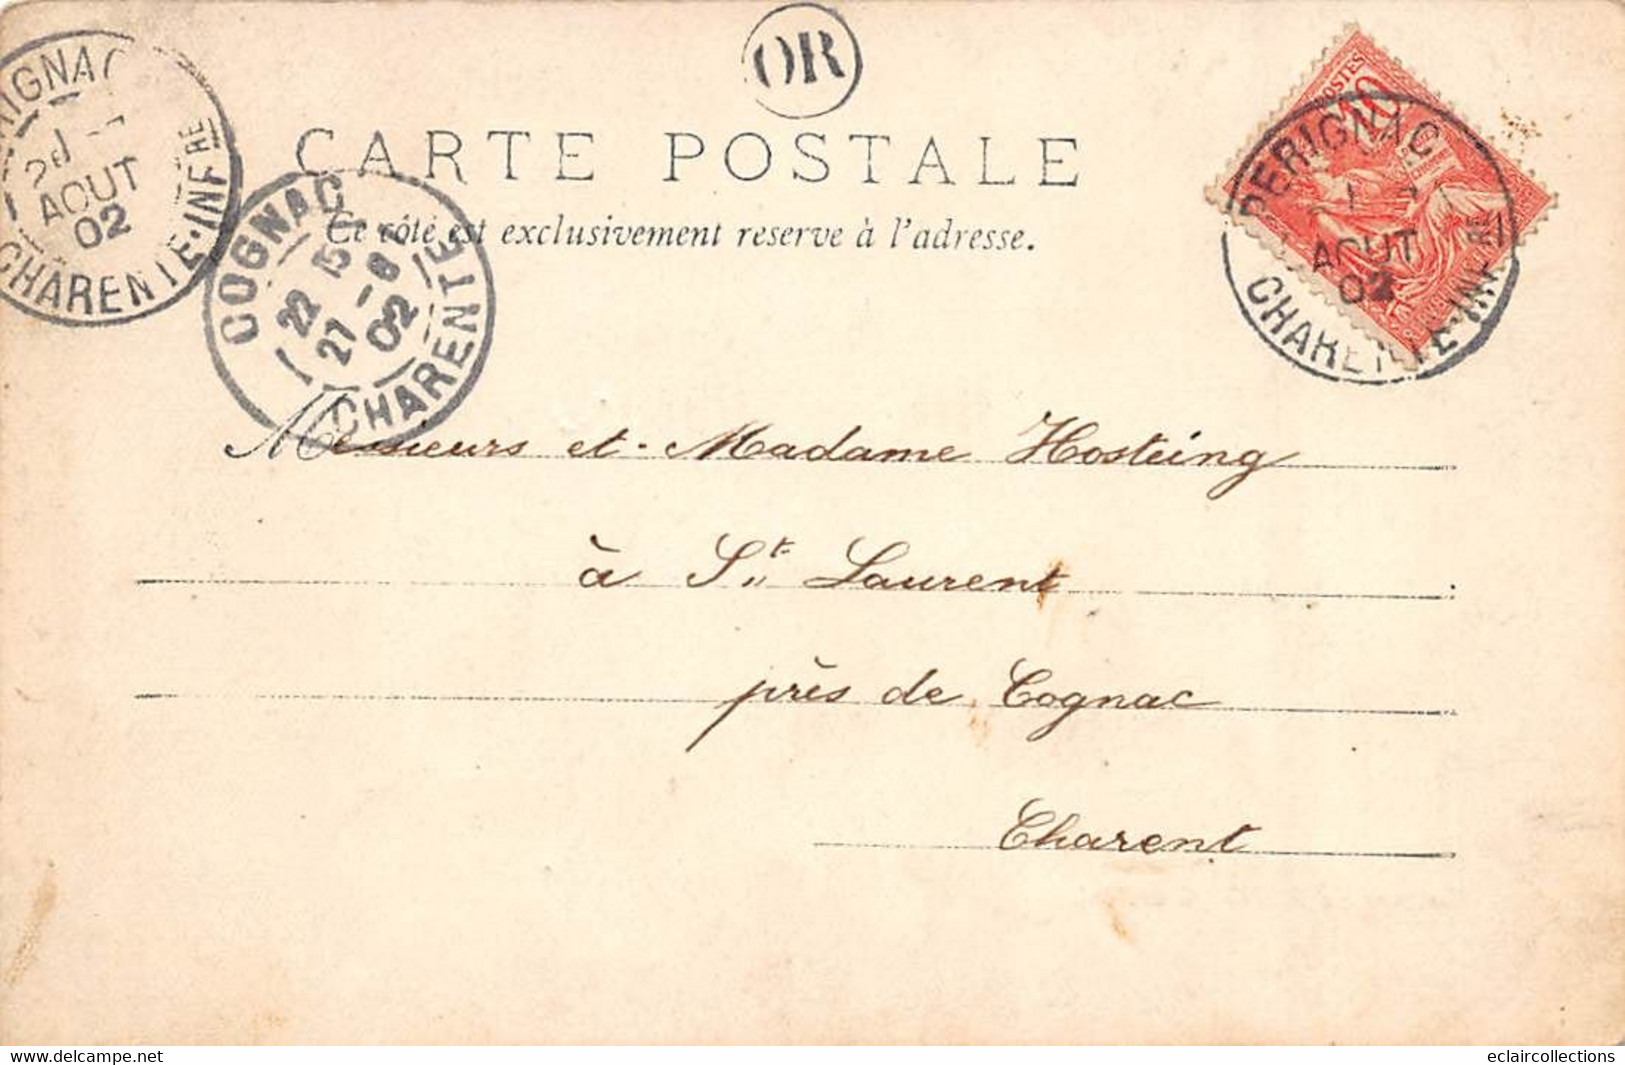 OR
CARTE POSTALE
Ce côté est exclusivement reserve à l'adresse.
AOUT
02
CHARENTE-INFRE
COGNAC
22 15
27 -8
02
CHARENTE
POSTES
10
PERIGNAC
AOUT
02
CHARENTE-INFRE
Messieurs et Madame Hosteing
à St Laurent
près de Cognac
Charent
www.delcampe.net
eclaircollections